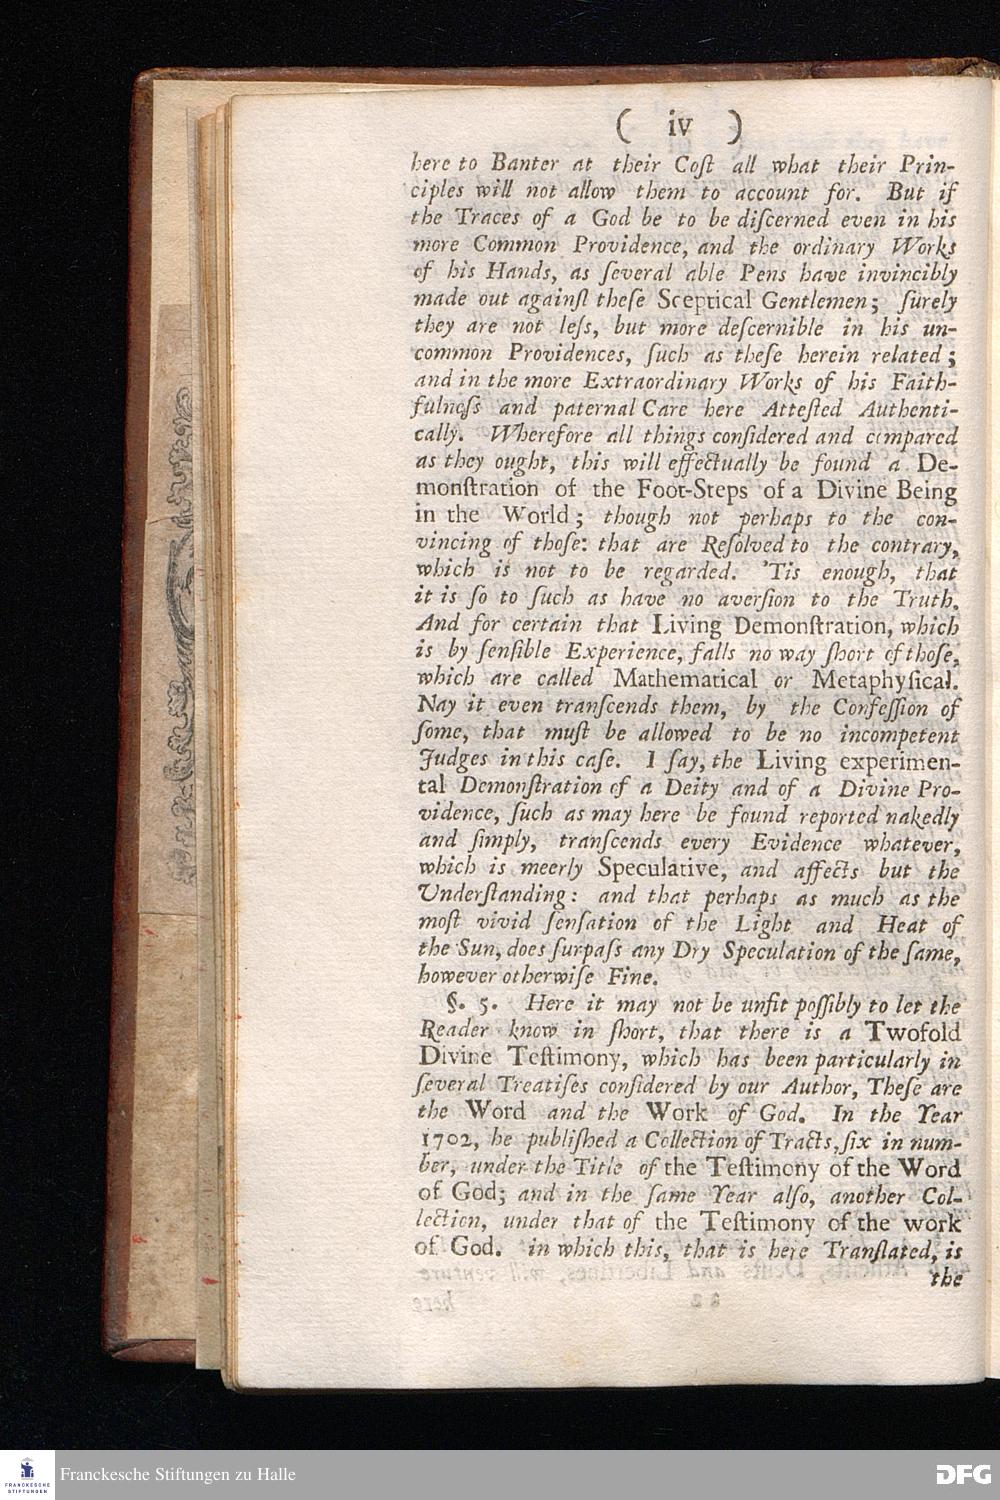 ( iv )
here to Banter at their Coſt all what their Prin-
ciples will not allow them to account for. But if
the Traces of a God be to be diſcerned even in his
more Common Providence, and the ordinary Works
of his Hands, as ſeveral able Pens have invincibly
made out againſt theſe Sceptical Gentlemen; ſurely
they are not leſs, but more deſcernible in his un-
common Providences, ſuch as theſe herein related;
and in the more Extraordinary Works of his Faith-
fulneſs and paternal Care here Atteſted Authenti-
cally. Wherefore all things conſidered and compared
as they ought, this will effectually be found a De-
monſtration of the Foot-Steps of a Divine Being
in the World; though not perhaps to the con-
vincing of thoſe: that are Reſolved to the contrary,
which is not to be regarded. 'Tis enough, that
it is ſo to ſuch as have no averſion to the Truth.
And for certain that Living Demonſtration, which
is by ſenſible Experience, falls no way ſhort of thoſe,
which are called Mathematical or Metaphyſical.
Nay it even tranſcends them, by the Confeſſion of
ſome, that muſt be allowed to be no incompetent
Judges in this caſe. I ſay, the Living experimen-
tal Demonſtration of a Deity and of a Divine Pro-
vidence, ſuch as may here be found reported nakedly
and ſimply, tranſcends every Evidence whatever,
which is meerly Speculative, and affects but the
Underſtanding: and that perhaps as much as the
moſt vivid ſenſation of the Light and Heat of
the Sun, does ſurpaſs any Dry Speculation of the ſame,
however otherwiſe Fine.
§. 5. Here it may not be unfit poſſibly to let the
Reader know in ſhort, that there is a Twofold
Divine Teſtimony, which has been particularly in
ſeveral Treatiſes conſidered by our Author, Theſe are
the Word and the Work of God. In the Year
1702, he publiſhed a Collection of Tracts, ſix in num-
ber, under the Title of the Teſtimony of the Word
of God; and in the ſame Year alſo, another Col-
lection, under that of the Teſtimony of the work
of God. in which this, that is here Tranſlated, is
the
Franckesche Stiftungen zu Halle
FRANCKESCHE
STIFTUNGEN
DFG